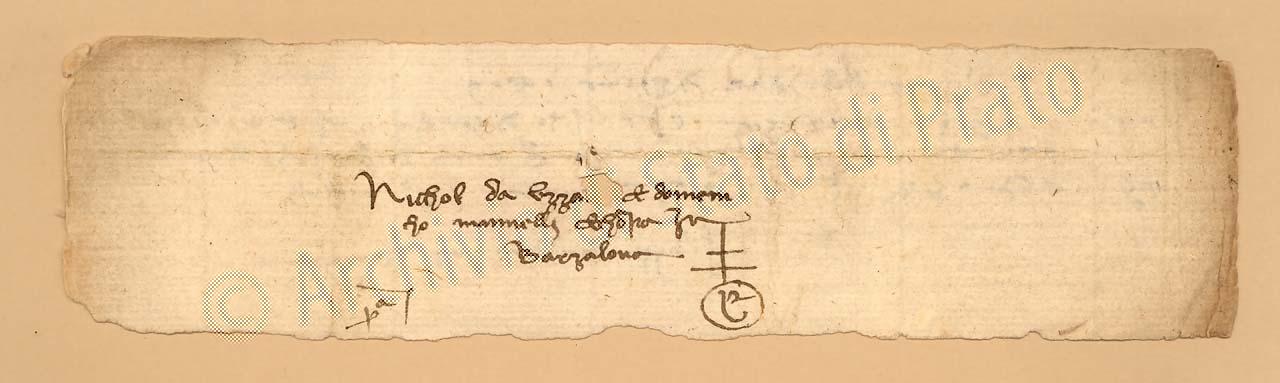 Nichol da Uzza e domeni
cho manuelli & chõpa in
Barzalona
pa
© Archivio di Stato di Prato